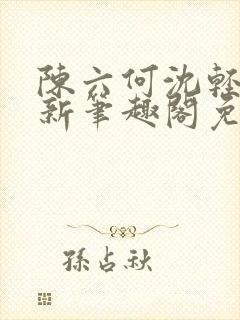 陳六何沈輕
新筆趣閣免
孫占秋